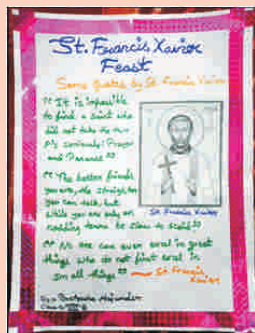 St. Francis Xavier
Feast
Some Quotes by St. Francis Xavier
"It is impossible
to find a saint who
did not take the two
P's seriously! Prayer
and Penance"
"The better friends
you are, the straighter
you can talk, but
while you are only on
nodding terms be slow to scold"
St. Francis Xavier
"No one can ever excel in great
things who do not first excel in
small things"
St. Francis
Xavier